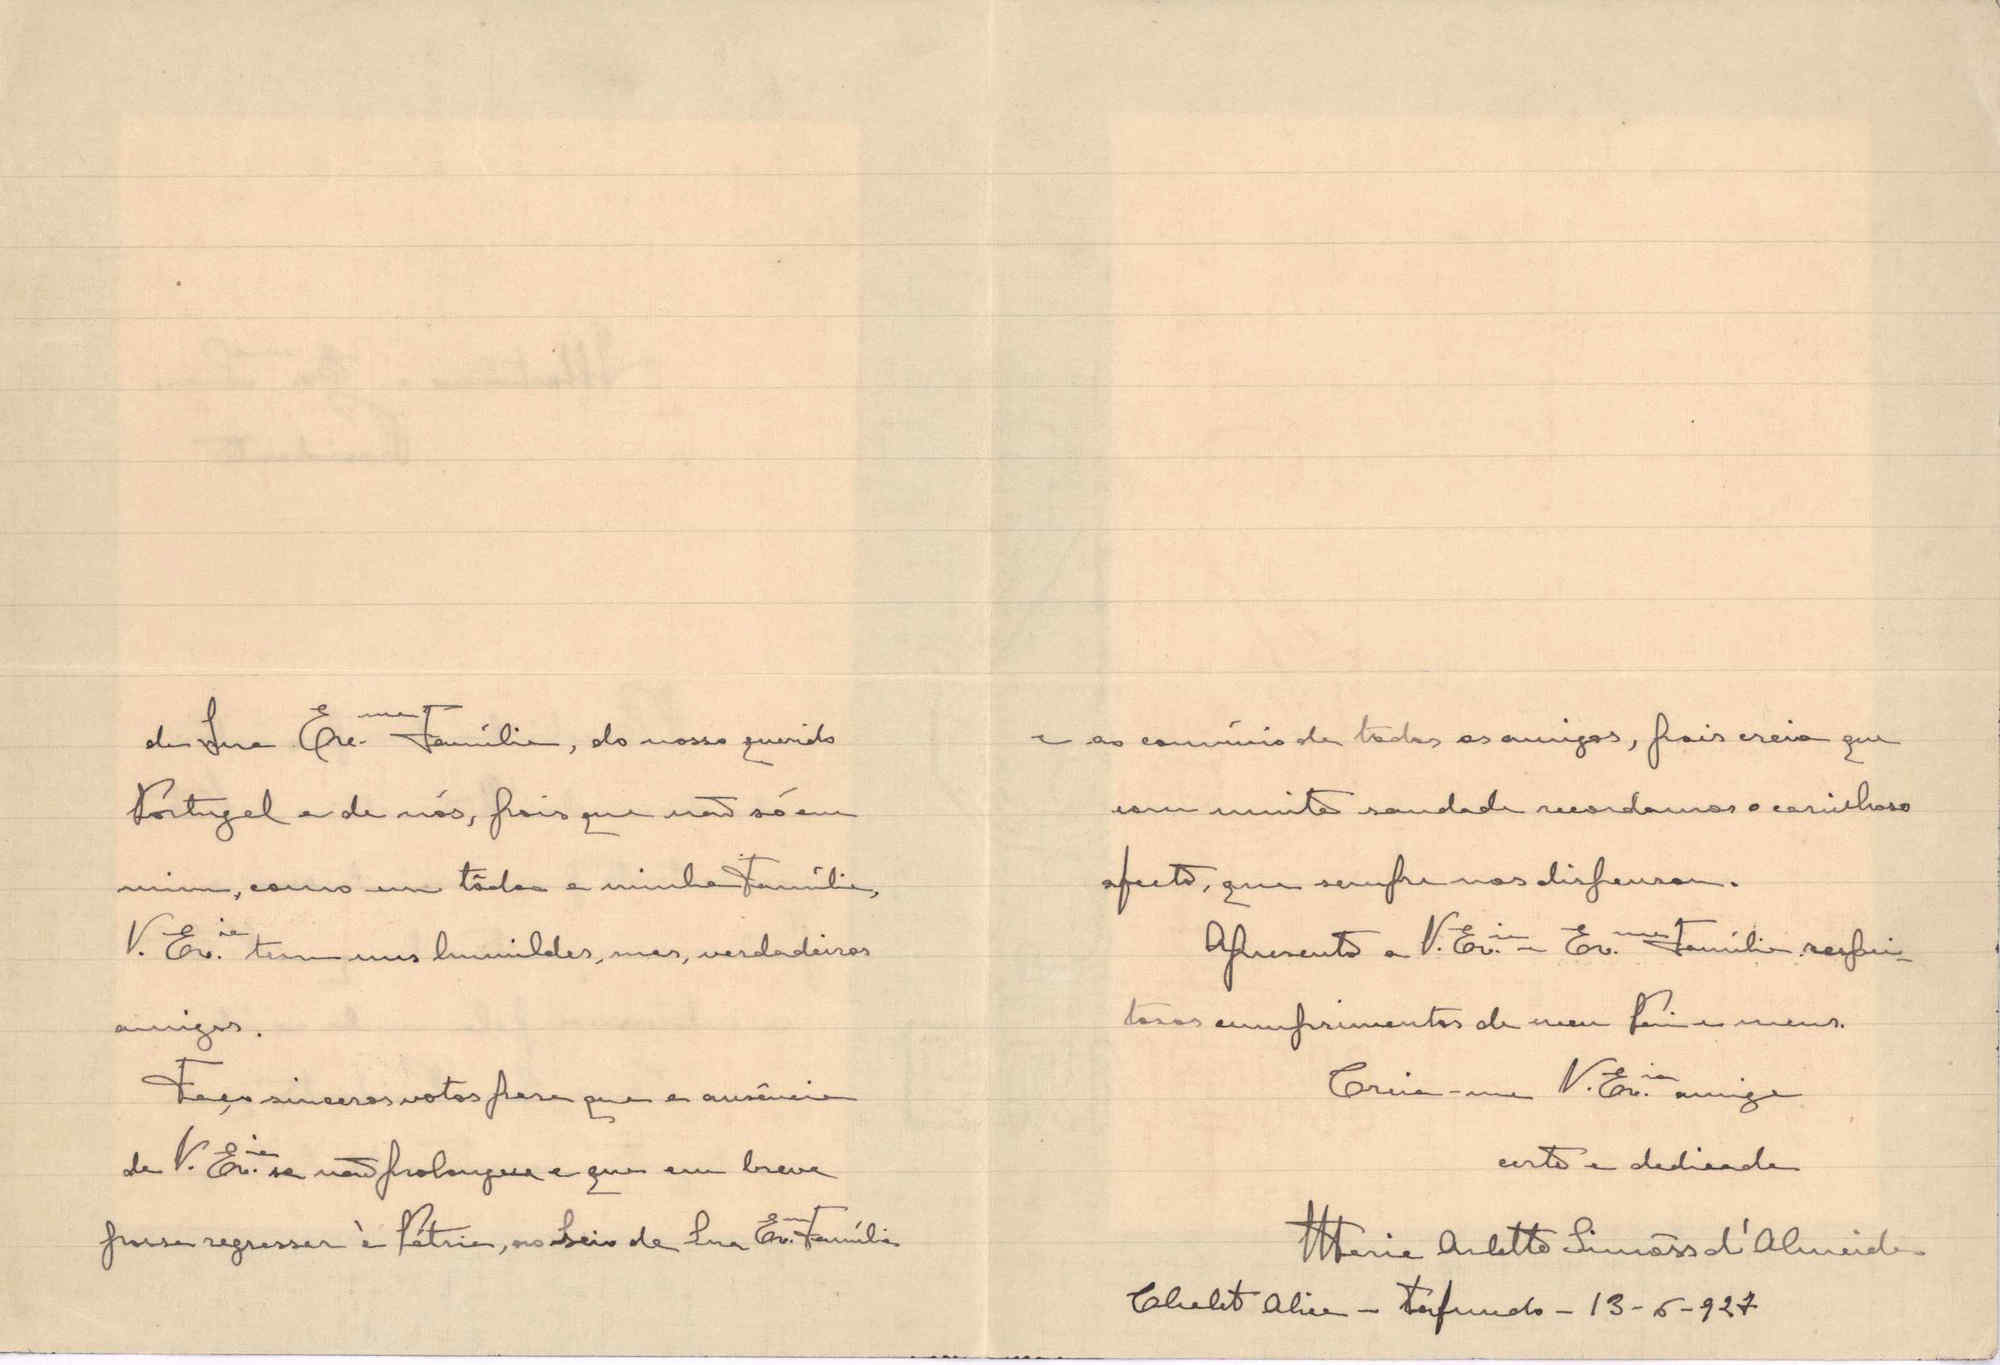 de Sua Ex.ma Família, do nosso querido
Portugal e de nós, pois que não só em
mim, como em tôda a minha Família,
V. Ex.ia tem uns humildes, mas, verdadeiros
amigos.
Faço sinceros votos para que a ausência
de V. Ex.ia se não prolongue e que em breve
possa regressar à Pátria, ao seio de Sua Ex.ma Família
e ao convívio de todos os amigos, pois creia que
com muita saudade recordamos o carinhoso
afecto, que sempre nos dispensou.
Apresento a V. Ex.ia e Ex.ma Família respei-
tosos cumprimentos de meu Pai e meus.
Creia-me V. Ex.ia amiga
certa e dedicada
Maria Arlette Simões d'Almeida
Chalet Alice - Tafundo - 13-6-927